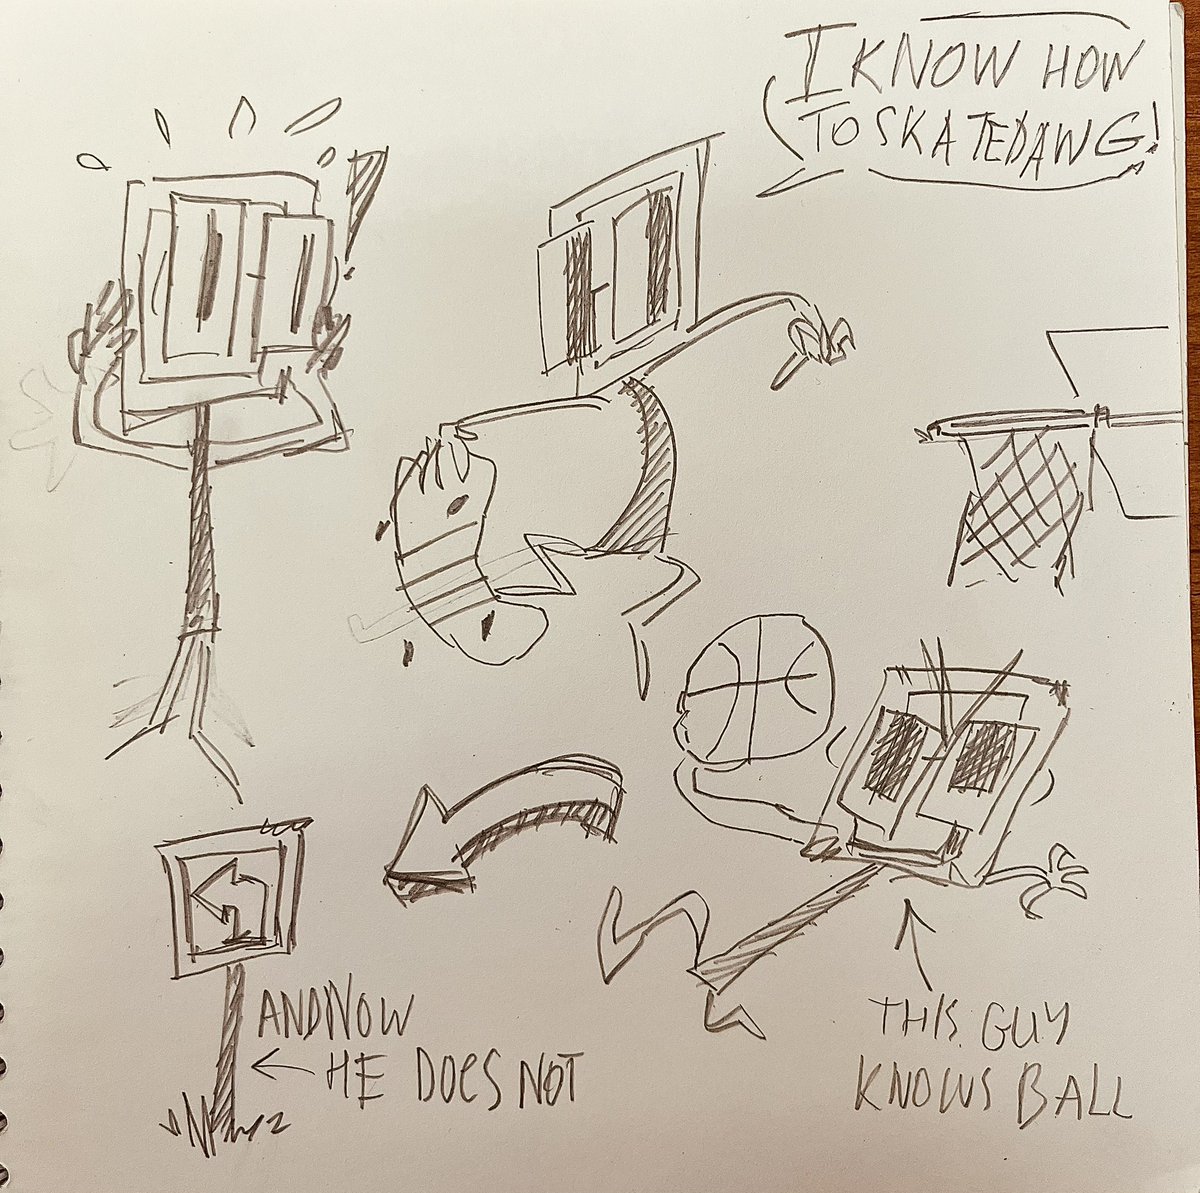 I KNOW HOW
TO SKATE DAWG!
THIS GUY
KNOWS BALL
AND NOW
HE DOES NOT